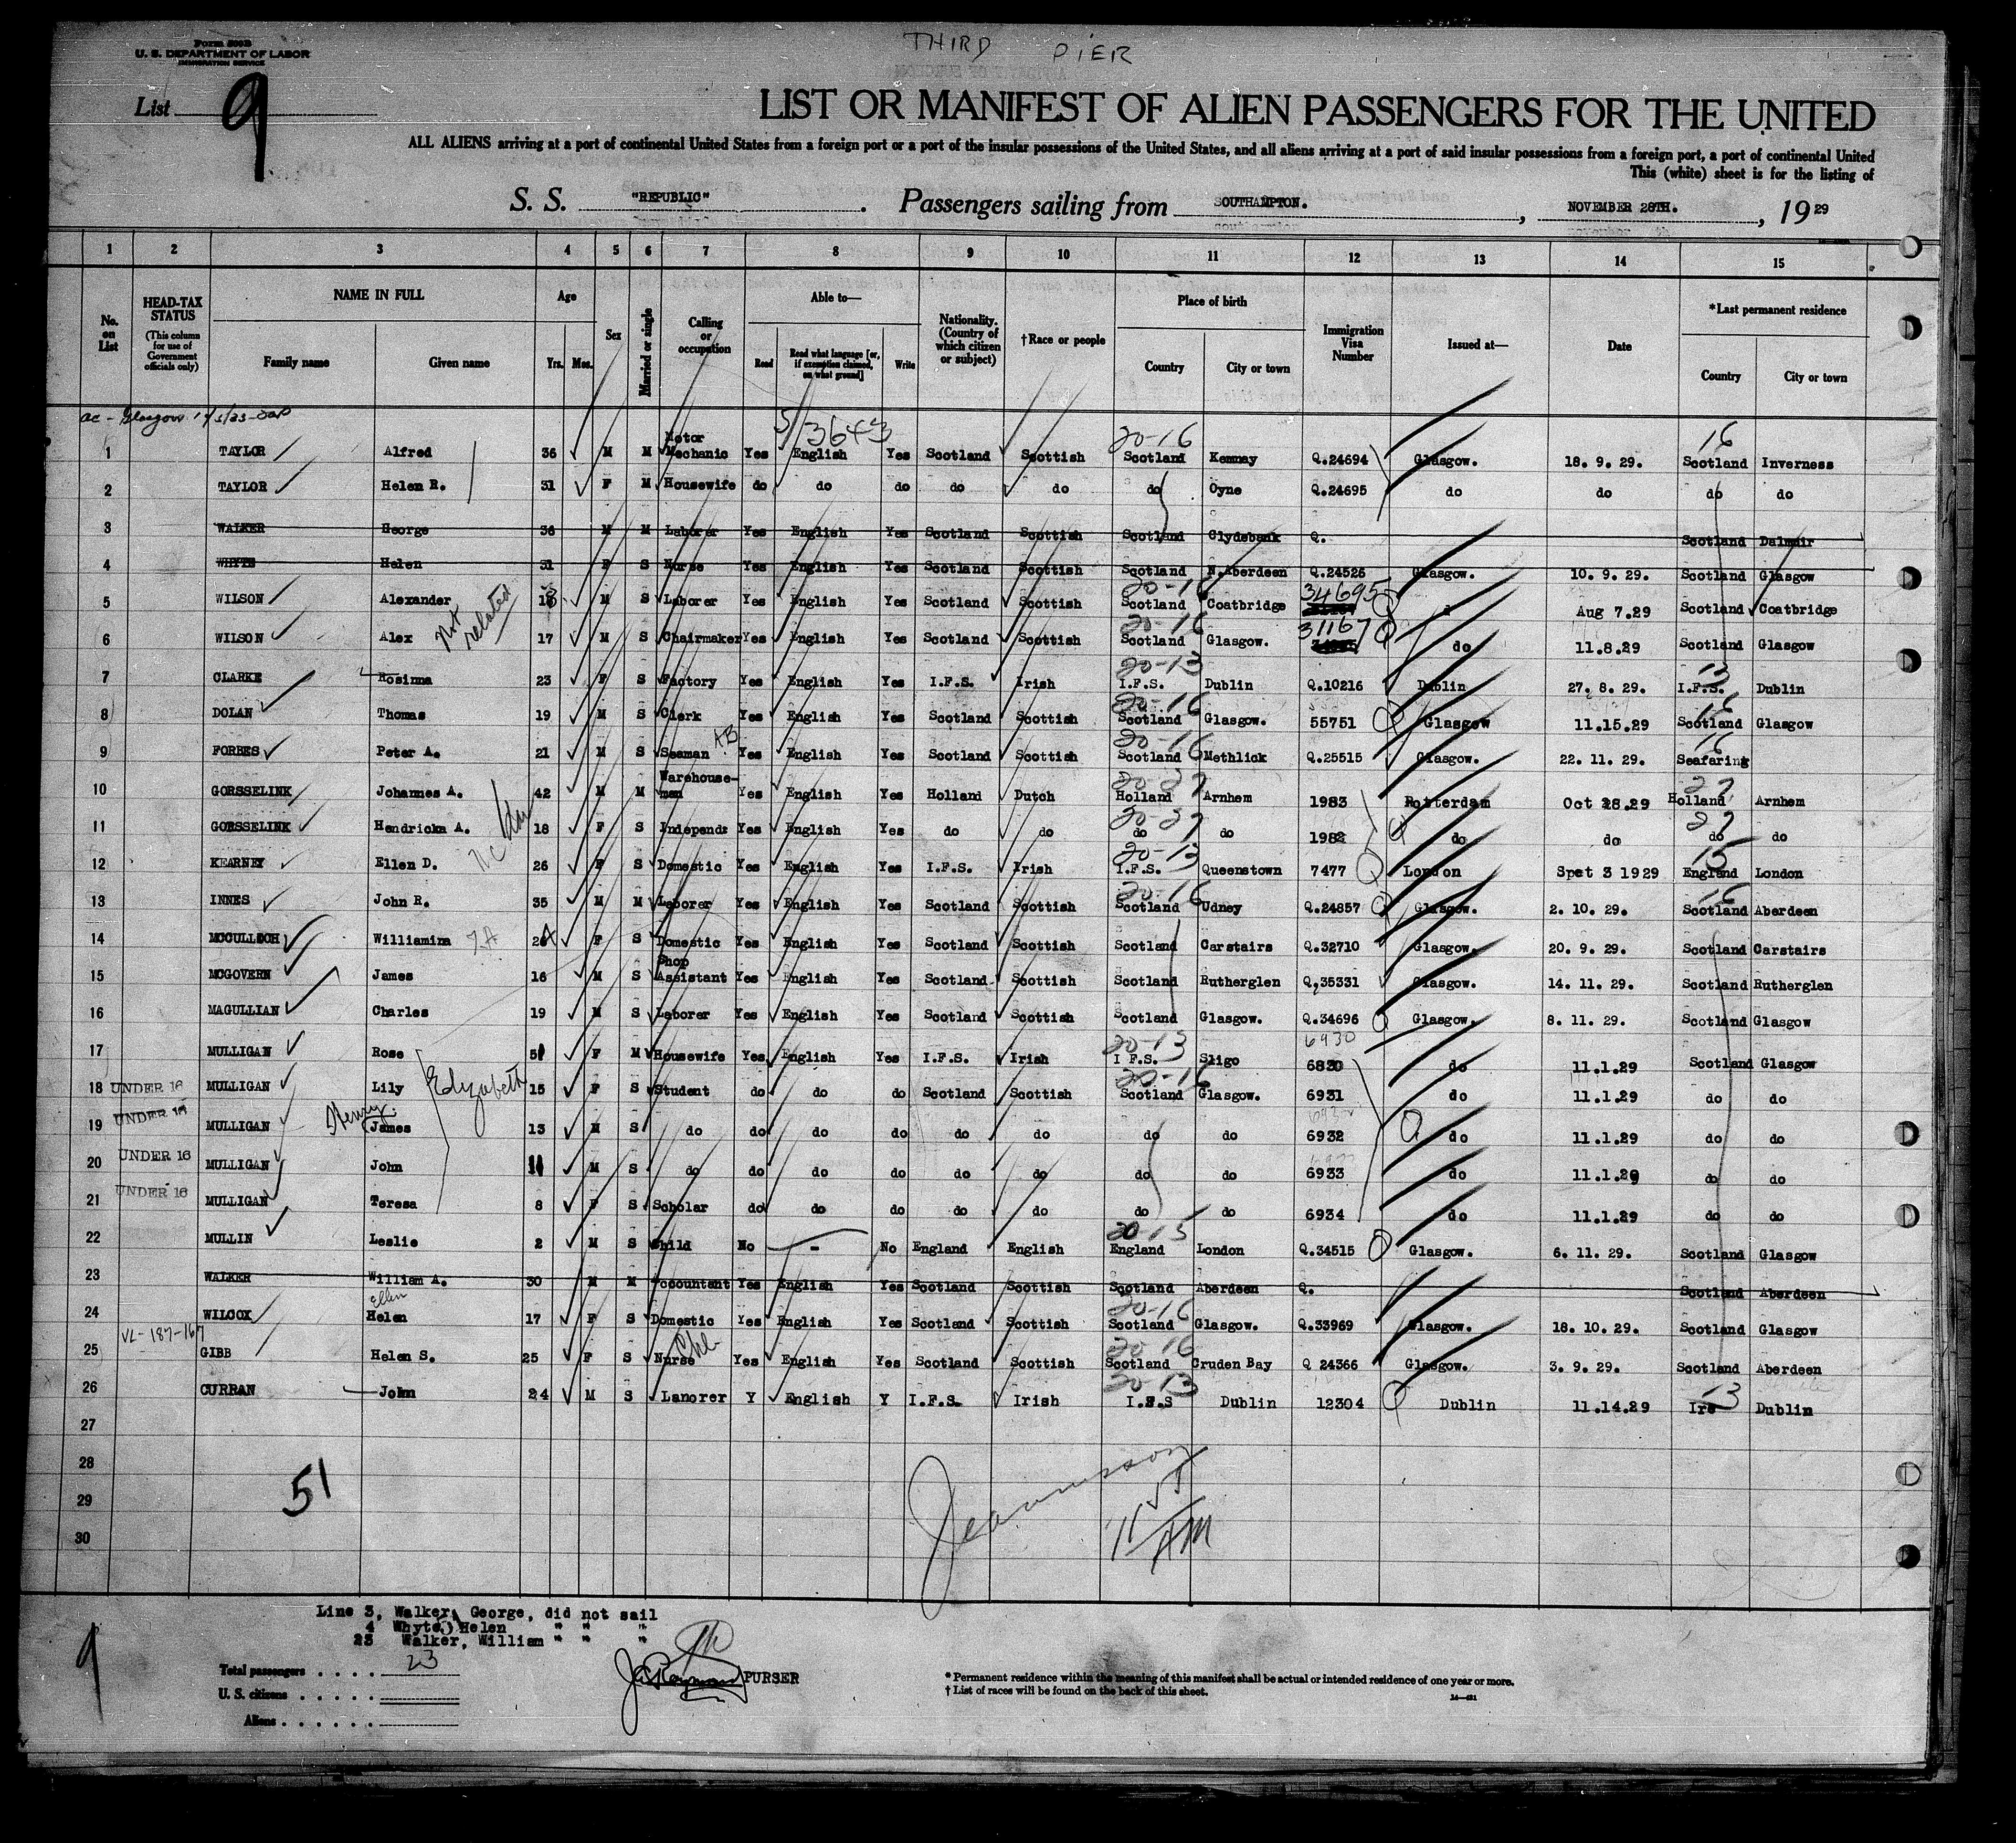 THIRD PIER
Form 500B
U. S. DEPARTMENT OF LABOR
IMMIGRATION SERVICE
List 9
LIST OR MANIFEST OF ALIEN PASSENGERS FOR THE UNITED
ALL ALIENS arriving at a port of continental United States from a foreign port or a port of the insular possessions of the United States, and all aliens arriving at a port of said insular possessions from a foreign port, a port of continental United
This (white) sheet is for the listing of
S. S. "REPUBLIC". Passengers sailing from SOUTHAMPTON., NOVEMBER 28TH., 1929
1 2 3 4 5 6 7 8 9 10 11 12 13 14 15
No. on List
HEAD-TAX STATUS (This column for use of Government officials only)
NAME IN FULL Family name Given name
Age Yrs. Mos.
Sex
Married or single
Calling or occupation
Able to— Read Read what language [or, if exemption claimed, on what ground] Write
Nationality. (Country of which citizen or subject)
†Race or people
Place of birth Country City or town
Immigration Visa Number
Issued at—
Date
*Last permanent residence Country City or town
3643 20-16 16
1 TAYLOR Alfred 36 M M Motor Mechanic Yes English Yes Scotland Scottish Scotland Kemnay Q.24694 Glasgow. 18. 9. 29. Scotland Inverness
2 TAYLOR Helen R. 31 F M Housewife do do do do do do Oyne Q.24695 do do do do
3 WALKER George 36 M M Laborer Yes English Yes Scotland Scottish Scotland Clydebank Q. Scotland Dalmuir
4 WHYTE Helen 31 F S Nurse Yes English Yes Scotland Scottish Scotland N.Aberdeen Q.24526 Glasgow. 10. 9. 29. Scotland Glasgow
Not related
20-16 34695
5 WILSON Alexander 18 M S Laborer Yes English Yes Scotland Scottish Scotland Coatbridge Aug 7.29 Scotland Coatbridge
20-16 31167
6 WILSON Alex 17 M S Chairmaker Yes English Yes Scotland Scottish Scotland Glasgow. do 11.8.29 Scotland Glasgow
20-13 13
7 CLARKE Rosinna 23 F S Factory Yes English Yes I.F.S. Irish I.F.S. Dublin Q.10216 Dublin 27. 8. 29. I.F.S. Dublin
20-16 16
8 DOLAN Thomas 19 M S Clerk Yes English Yes Scotland Scottish Scotland Glasgow. 55751 Glasgow 11.15.29 Scotland Glasgow
AB 20-16 16
9 FORBES Peter A. 21 M S Seaman Yes English Yes Scotland Scottish Scotland Methlick Q.25515 Glasgow. 22. 11. 29. Seafaring
20-27 27
10 GORSSELINK Johannes A. 42 M M Warehouse-man Yes English Yes Holland Dutch Holland Arnhem 1983 Rotterdam Oct 28.29 Holland Arnhem
20-27 27
11 GORSSELINK Hendricka A. 18 F S Independt Yes English Yes do do do do 1982 do do do do
20-13 15
12 KEARNEY Ellen D. 26 F S Domestic Yes English Yes I.F.S. Irish I.F.S. Queenstown 7477 London Spet 3 1929 England London
20-16 16
13 INNES John R. 35 M M Laborer Yes English Yes Scotland Scottish Scotland Udney Q.24857 Glasgow. 2. 10. 29. Scotland Aberdeen
14 MCCULLOCH Williamina 26 F S Domestic Yes English Yes Scotland Scottish Scotland Carstairs Q.32710 Glasgow. 20. 9. 29. Scotland Carstairs
15 MCGOVERN James 16 M S Shop Assistant Yes English Yes Scotland Scottish Scotland Rutherglen Q.35331 Glasgow. 14. 11. 29. Scotland Rutherglen
16 MAGULLIAN Charles 19 M S Laborer Yes English Yes Scotland Scottish Scotland Glasgow. Q.34696 Glasgow. 8. 11. 29. Scotland Glasgow
20-13 6930
17 MULLIGAN Rose 51 F M Housewife Yes English Yes I.F.S. Irish I F.S. Sligo 6830 do 11.1.29 Scotland Glasgow
Elizabeth 20-16
18 UNDER 16 MULLIGAN Lily 15 F S Student do do do Scotland Scottish Scotland Glasgow. 6931 do 11.1.29 do do
Henry.
19 UNDER 16 MULLIGAN James 13 M S do do do do do do do do 6932 do 11.1.29 do do
20 UNDER 16 MULLIGAN John 11 M S do do do do do do do do 6933 do 11.1.29 do do
21 UNDER 16 MULLIGAN Teresa 8 F S Scholar do do do do do do do 6934 do 11.1.29 do do
20-15
22 MULLIN Leslie 2 M S Child No - No England English England London Q.34515 Glasgow. 6. 11. 29. Scotland Glasgow
23 WALKER William A. 30 M M Accountant Yes English Yes Scotland Scottish Scotland Aberdeen Q. Scotland Aberdeen
Ellen 20-16
24 WILCOX Helen 17 F S Domestic Yes English Yes Scotland Scottish Scotland Glasgow. Q.33969 Glasgow. 18. 10. 29. Scotland Glasgow
VL-187-167 20-16
25 GIBB Helen S. 25 F S Nurse Yes English Yes Scotland Scottish Scotland Cruden Bay Q 24366 Glasgow. 3. 9. 29. Scotland Aberdeen
20-13 13
26 CURRAN John 24 M S Lanorer Y English Y I.F.S. Irish I.F.S Dublin 12304 Dublin 11.14.29 Ire Dublin
27
28
29
30
51
11 55 AM
Line 3, Walker, George, did not sail
4 Whyte, Helen " " "
23 Walker, William " " "
9
Total passengers . . . . 23
U. S. citizens . . . . .
Aliens . . . . . .
PURSER
* Permanent residence within the meaning of this manifest shall be actual or intended residence of one year or more.
† List of races will be found on the back of this sheet.